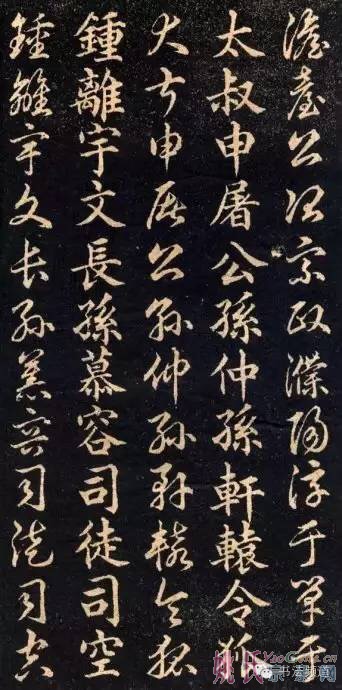 澹臺公冶宗政濮陽淳于單于
太叔申屠公孫仲孫軒轅令狐
太叔申屠公孫仲孫軒轅令狐
鍾離宇文長孫慕容司徒司空
鍾離宇文長孫慕容司徒司空
书法频道